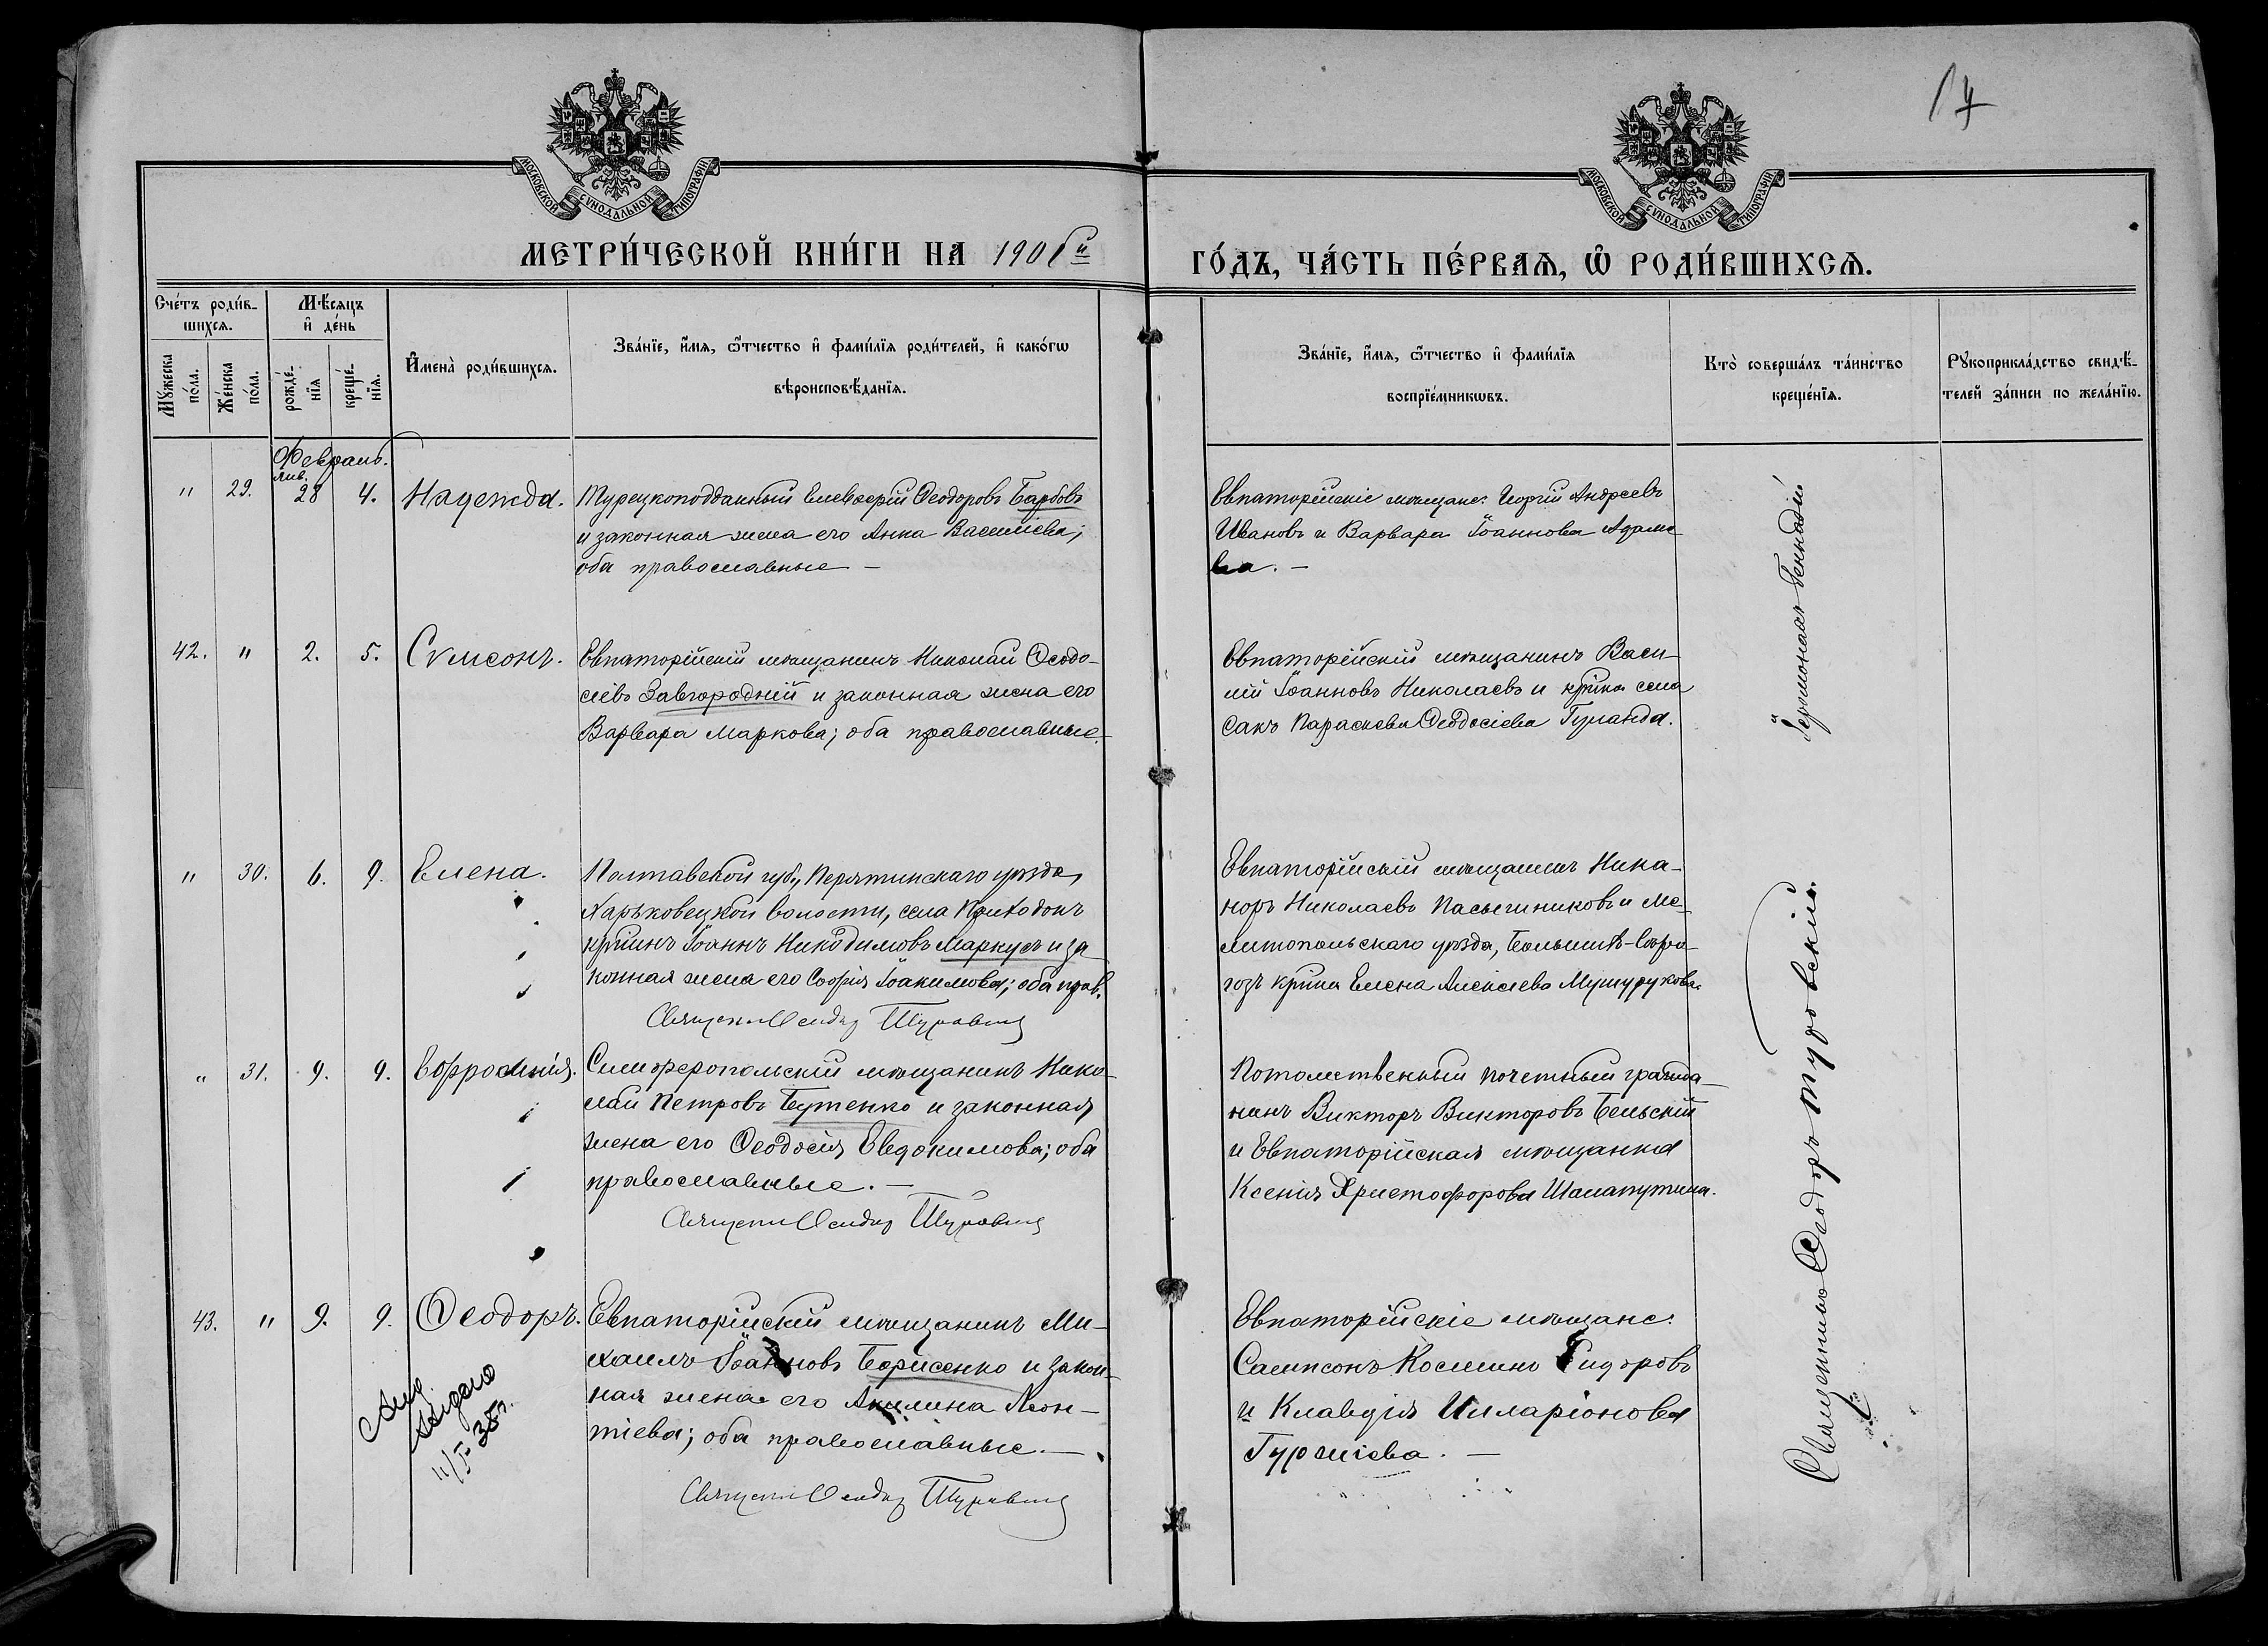 17
МОСКОВСКОЙ СѴНОДАЛЬНОЙ ТИПОГРАФІИ
МОСКОВСКОЙ СѴНОДАЛЬНОЙ ТИПОГРАФІИ
МЕТРИ́ЧЕСКОЙ КНИ́ГИ НА 190
ГО́ДЪ, ЧА́СТЬ ПЕ́РВАѦ, Ѡ РОДИ́ВШИХСѦ.
Сче́тъ роди́в-
шихсѧ.
Мѣ́сяцъ
и де́нь
Мꙋ́жеска
по́ла.
Же́нска
по́ла.
рожде́-
нїѧ
креще́-
нїѧ.
Имена̀ роди́вшихсѧ.
Зва́нїе, и́мѧ, ѻ́тчество и фами́лїѧ роди́телей, и како́гѡ
вѣроисповѣ́данїѧ.
Зва́нїе, и́мѧ, ѻ́тчество и фами́лїѧ
воспрїе́мникѡвъ.
Кто̀ соверша́лъ та́инство
креще́нїѧ.
Рꙋкоприкла́дство свидѣ́-
телей за́писи по жела́нїю.
Февраль.
янв.
" 29. 28 4. Надежда.
Турецкоподданный Елевѳерій Ѳеодоровъ Барбовъ
и законная жена его Анна Василіева;
оба православные —
Евпаторійскіе мѣщане: Георгій Андреевъ
Ивановъ и Варвара Іоаннова Адаме
ва. —
Іеромонахъ Геннадій
42. " 2. 5. Сѵмсонъ.
Евпаторійскій мѣщанинъ Николай Ѳеодо-
сіевъ Завгородній и законная жена его
Варвара Маркова; оба православные.
Евпаторійскій мѣщанинъ Васи-
лій Іоанновъ Николаевъ и кр̃нка села
Сакъ Параскева Ѳеодосіева Гуланда.
" 30. 6. 9. Елена.
Полтавской губ., Пирятинскаго уѣзда,
Харьковецкой волости, села Приходокъ
кр̃нинъ Іоаннъ Никодимовъ Маркусъ и за
конная жена его Софія Іоакимова; оба прав.
Священникъ Ѳеодоръ Туровскій
Евпаторійскій мѣщанинъ Ника-
норъ Николаевъ Пасѣчниковъ и Ме-
литопольскаго уѣзда,
кр̃нка Елена Алексіева
" 31. 9. 9. Евфросинія.
Симферопольскій мѣщанинъ Нико-
лай Петровъ Бутенко и законная
жена его Ѳеодосія Евдокимова; оба
православные. —
Священникъ Ѳеодоръ Туровскій
Потомственный почетный гражда-
нинъ Викторъ Викторовъ Бельскій
и Евпаторійская мѣщанка
Ксенія Христофорова Шалапутина.
43. " 9. 9. Ѳеодоръ.
Евпаторійскій мѣщанинъ Ми-
хаилъ Іоанновъ Борисенко и закон-
ная жена его Акилина Леон-
тіева; оба православные. —
Священникъ Ѳеодоръ Туровскій
Евпаторійскіе мѣщане:
Сампсонъ Косминъ Сидоровъ
и Клавдія Илларіонова
Гуржіева. —
Священникъ Ѳеодоръ Туровскій.